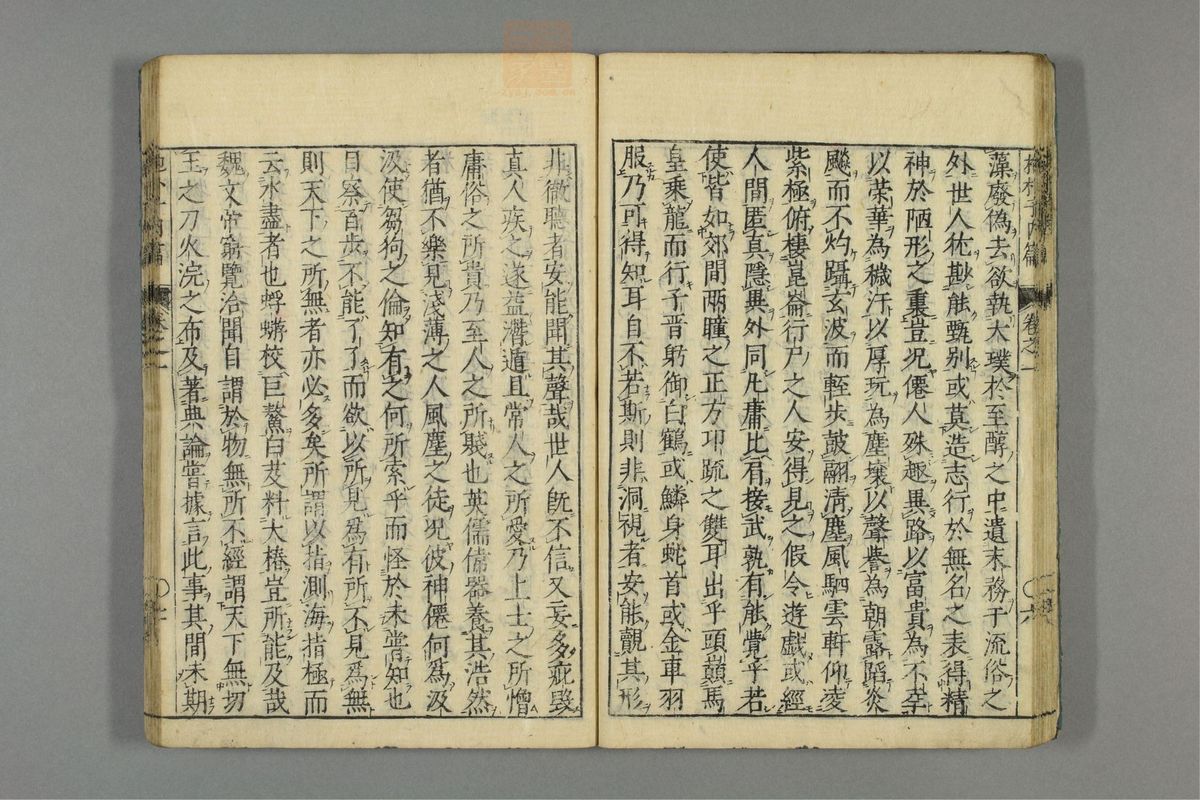 藻廢偽去欲執大璞於至醇之中遺末務于流俗之
外世人猶尠能甄別或莫造志行於無名之表得精
神於陋形之裏豈况僊人殊趣異路以富貴為不幸
以荣華為穢汙以厚玩為塵壤以聲譽為朝露蹈炎
飈而不灼躡玄波而輕歩皷翮清塵風駟雲軒仰凌
紫極俯棲崑崙行尸之人安得見之假令遊戯或經
人間匿真隱異外同凡庸比肩接武孰有能覺乎若
使皆如郊間兩瞳之正方卭疏之雙耳出乎頭巔馬
皇乘龍而行子晋躬御白鶴或鱗身蛇首或金車羽
服乃可得知耳自不若斯則非洞視者安能覿其形
非徹聽者安能聞其聲哉世人既不信又妄多疵毀
真人疾之遂益潛遁且常人之所愛乃上士之所憎
庸俗之所貴乃至人之所賤也英儒偉器養其浩然
者猶不樂見淺薄之人風塵之徒况彼神僊何爲汲
汲使芻狗之倫知有之何所索乎而怪於未嘗知也
目察百歩不能了了而欲以所見爲有所不見爲無
則天下之所無者亦必多矣所謂以指測海指極而
云水盡者也蜉蝣校巨鰲白芨料大椿豈所能及哉
魏文帝窮覽洽聞自謂於物無所不經謂天下無切
玉之刀火浣之布及著典論嘗據言此事其間未期